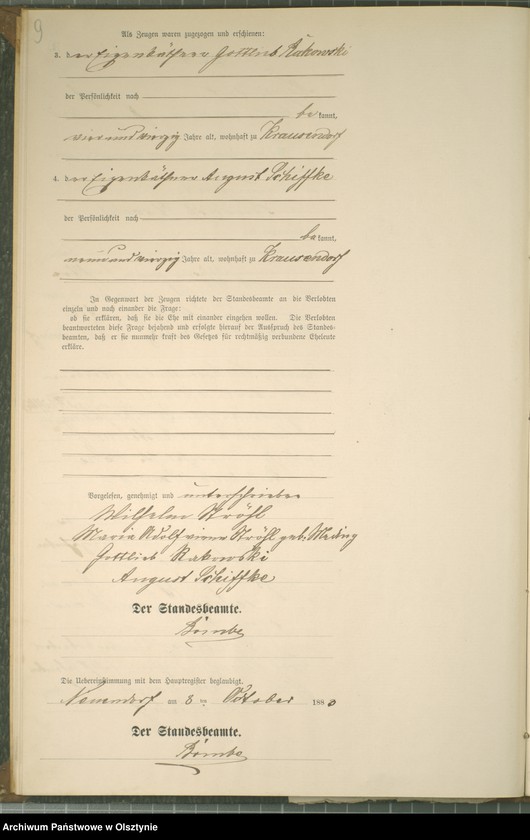 9
Als Zeugen waren zugezogen und erschienen:
3. der Eigenkäthner Gottlieb Rakowski
der Persönlichkeit nach
bekannt,
vierundvierzig Jahre alt, wohnhaft zu Krausendorf
4. der Eigenkäthner August Schiffke
der Persönlichkeit nach
bekannt,
neunundvierzig Jahre alt, wohnhaft zu Krausendorf
In Gegenwart der Zeugen richtete der Standesbeamte an die Verlobten
einzeln und nach einander die Frage:
ob sie erklären, daß sie die Ehe mit einander eingehen wollen. Die Verlobten
beantworteten diese Frage bejahend und erfolgte hierauf der Ausspruch des Standes-
beamten, daß er sie nunmehr kraft des Gesetzes für rechtmäßig verbundene Eheleute
erkläre.
Vorgelesen, genehmigt und unterschrieben
Wilhelm Ströhl
Maria Ströhl geb.
Gottlieb Rakowski
August Schiffke
Der Standesbeamte.
Die Uebereinstimmung mit dem Hauptregister beglaubigt.
Neuendorf am 8 ten October 1880
Der Standesbeamte.
Archiwum Państwowe w Olsztynie